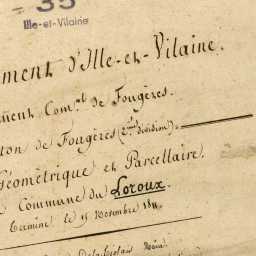 35
Ille-et-Vilaine
ment d'Ille-et-Vilaine.
ment Com.al de Fougères.
ton de Fougères (2me Division).
Géométrique et Parcellaire.
Commune du Loroux.
Terminé le 9 Novembre 18
Maire